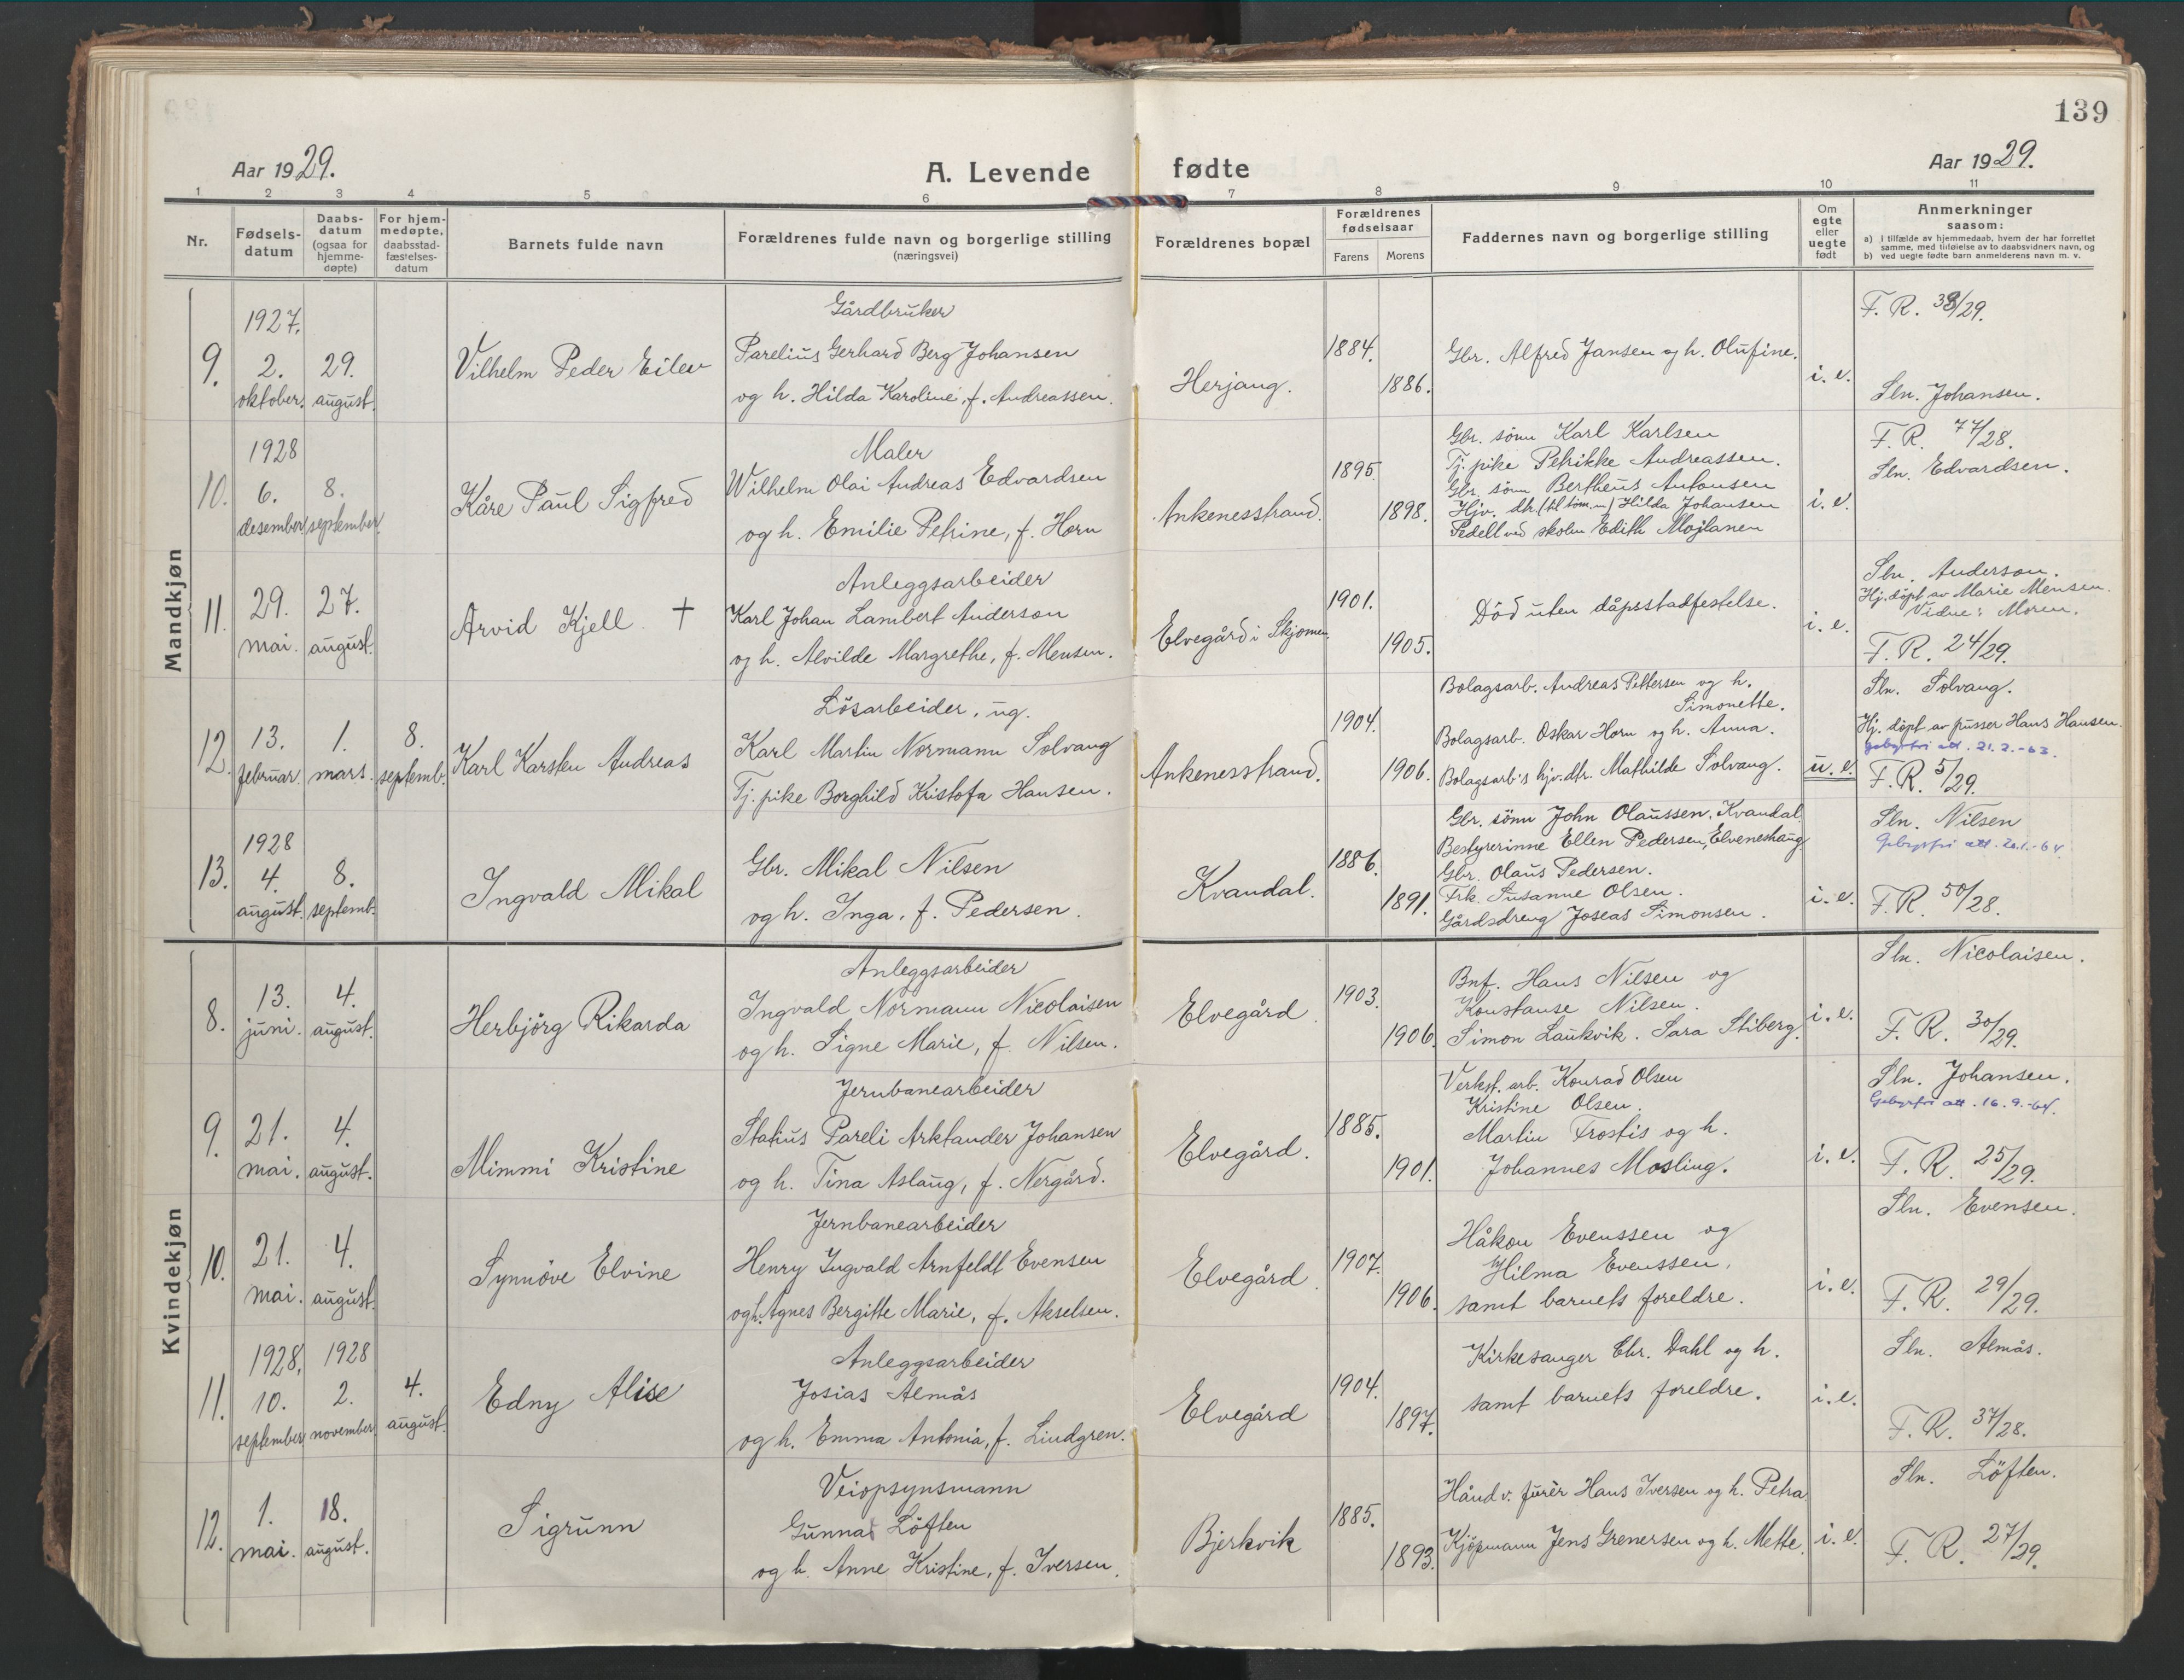 139
Aar 1929.
A. Levende fødte
Aar 1929.
1 2 3 4 5 6 7 8 9 10 11
Nr.
Fødselsdatum
Daabsdatum (ogsaa for hjemmedøpte)
For hjemmedøpte, daabsstadfæstelsesdatum
Barnets fulde navn
Forældrenes fulde navn og borgerlige stilling
(næringsvei)
Forældrenes bopæl
Forældrenes fødselsaar
Farens Morens
Faddernes navn og borgerlige stilling
Om egte eller uegte født
Anmerkninger
saasom:
a) i tilfælde av hjemmedaab, hvem der har forrettet
samme, med tilføielse av to daabsvidners navn, og
b) ved uegte fødte barn anmelderens navn m. v.
Mandkjøn
9.
1927.
2.
oktober.
29.
august.
Vilhelm Peder Eilev
Gårdbruker
Parelius Gerhard Berg Johansen
og h. Hilda Karoline, f. Andreassen.
Herjang.
1884.
1886.
Gbr. Alfred Jansen og h. Olufine.
i. e.
F. R. 38/29.
Sln. Johansen.
10.
1928
6.
desember
8.
september
Kåre Paul Sigfred
Maler
Wilhelm Olai Andreas Edvardsen
og h. Emilie Petrine, f. Horn
Ankenesstrand.
1895.
1898.
Gbr. sönn Karl Karlsen
Tj. pike Petrikke Andreassen.
Gbr. sönn Bertheus Antonsen
Hjv. dtr. Hilda Johansen
Pedell ved skolen Edith Mojlanen
i. e.
F. R. 77/28.
Sln. Edvardsen.
11.
29.
mai.
27.
august.
Arvid Kjell †
Anleggsarbeider
Karl Johan Lambert Anderson
og h. Alvilde Margrethe, f. Mensen.
Elvegård i Skjomen
1901.
1905.
Död uten dåpsstadfestelse.
i. e.
Sln. Anderson.
Hj. döpt av Marie Mensen.
Vidne: Moren.
F. R. 24/29.
12.
13.
februar.
1.
mars.
8.
septemb.
Karl Karsten Andreas
Lösarbeider, ug.
Karl Martin Normann Solvang
Tj. pike Borghild Kristofa Hansen.
Ankenesstrand.
1904.
1906.
Bolagsarb. Andreas Pettersen og h.
Simonette.
Bolagsarb. Oskar Horn og h. Anna.
Bolagsarb's hjv. dtr. Mathilde Solvang.
u. e.
Sln. Solvang.
Hj. döpt av pusser Hans Hansen.
gebyrfri att. 21.2.-63.
F. R. 5/29.
13.
1928
4.
august.
8.
septemb.
Ingvald Mikal
Gbr. Mikal Nilsen
og h. Inga, f. Pedersen.
Kvandal.
1886.
1891.
Gbr. sönn John Olaussen, Kvandal.
Bestyrerinne Ellen Pedersen, Elveneshaug.
Gbr. Olaus Pedersen.
Frk. Susanne Olsen.
Gårdsdreng Joseas Simonsen.
i. e.
Sln. Nilsen
Gebyrfri att. 20.1.-64.
F. R. 50/28.
Kvindekjøn
8.
13.
juni.
4.
august.
Herbjörg Rikarda
Anleggsarbeider
Ingvald Normann Nicolaisen
og h. Signe Marie, f. Nilsen.
Elvegård.
1903.
1906.
Bnf. Hans Nilsen og
Konstanse Nilsen.
Simon Laukvik. Sara Stiberg.
i. e.
Sln. Nicolaisen.
F. R. 30/29.
9.
21.
mai.
4.
august.
Mimmi Kristine
Jernbanearbeider
Statius Pareli Arktander Johansen
og h. Tina Aslaug, f. Nergård.
Elvegård.
1885.
1901.
Verkst. arb. Konrad Olsen
Kristine Olsen.
Martin Frostis og h.
Johannes Mosling.
i. e.
Sln. Johansen.
Gebyrfri att. 16.9.-64.
F. R. 25/29.
10.
21.
mai.
4.
august.
Synnöve Elvine
Jernbanearbeider
Henry Ingvald Arnfeldt Evensen
og h. Agnes Bergitte Marie, f. Akselsen.
Elvegård.
1907.
1906.
Håkon Evenssen og
Hilma Evenssen,
samt barnets foreldre.
i. e.
Sln. Evensen.
F. R. 29/29.
11.
1928.
10.
september
1928
2.
november
4.
august.
Edny Alise
Anleggsarbeider
Josias Almås
og h. Emma Antonia, f. Lindgren.
Elvegård
1904.
1897.
Kirkesanger Chr. Dahl og h.
samt barnets foreldre.
i. e.
Sln. Almås.
F. R. 37/28.
12.
1.
mai.
18.
august.
Sigrunn
Veiopsynsmann
Gunnar Löften
og h. Anne Kristine, f. Iversen.
Bjerkvik
1885.
1893.
Håndv. furér Hans Iversen og h. Petra
Kjöpmann Jens Grenersen og h. Mette.
i. e.
Sln. Löften.
F. R. 27/29.